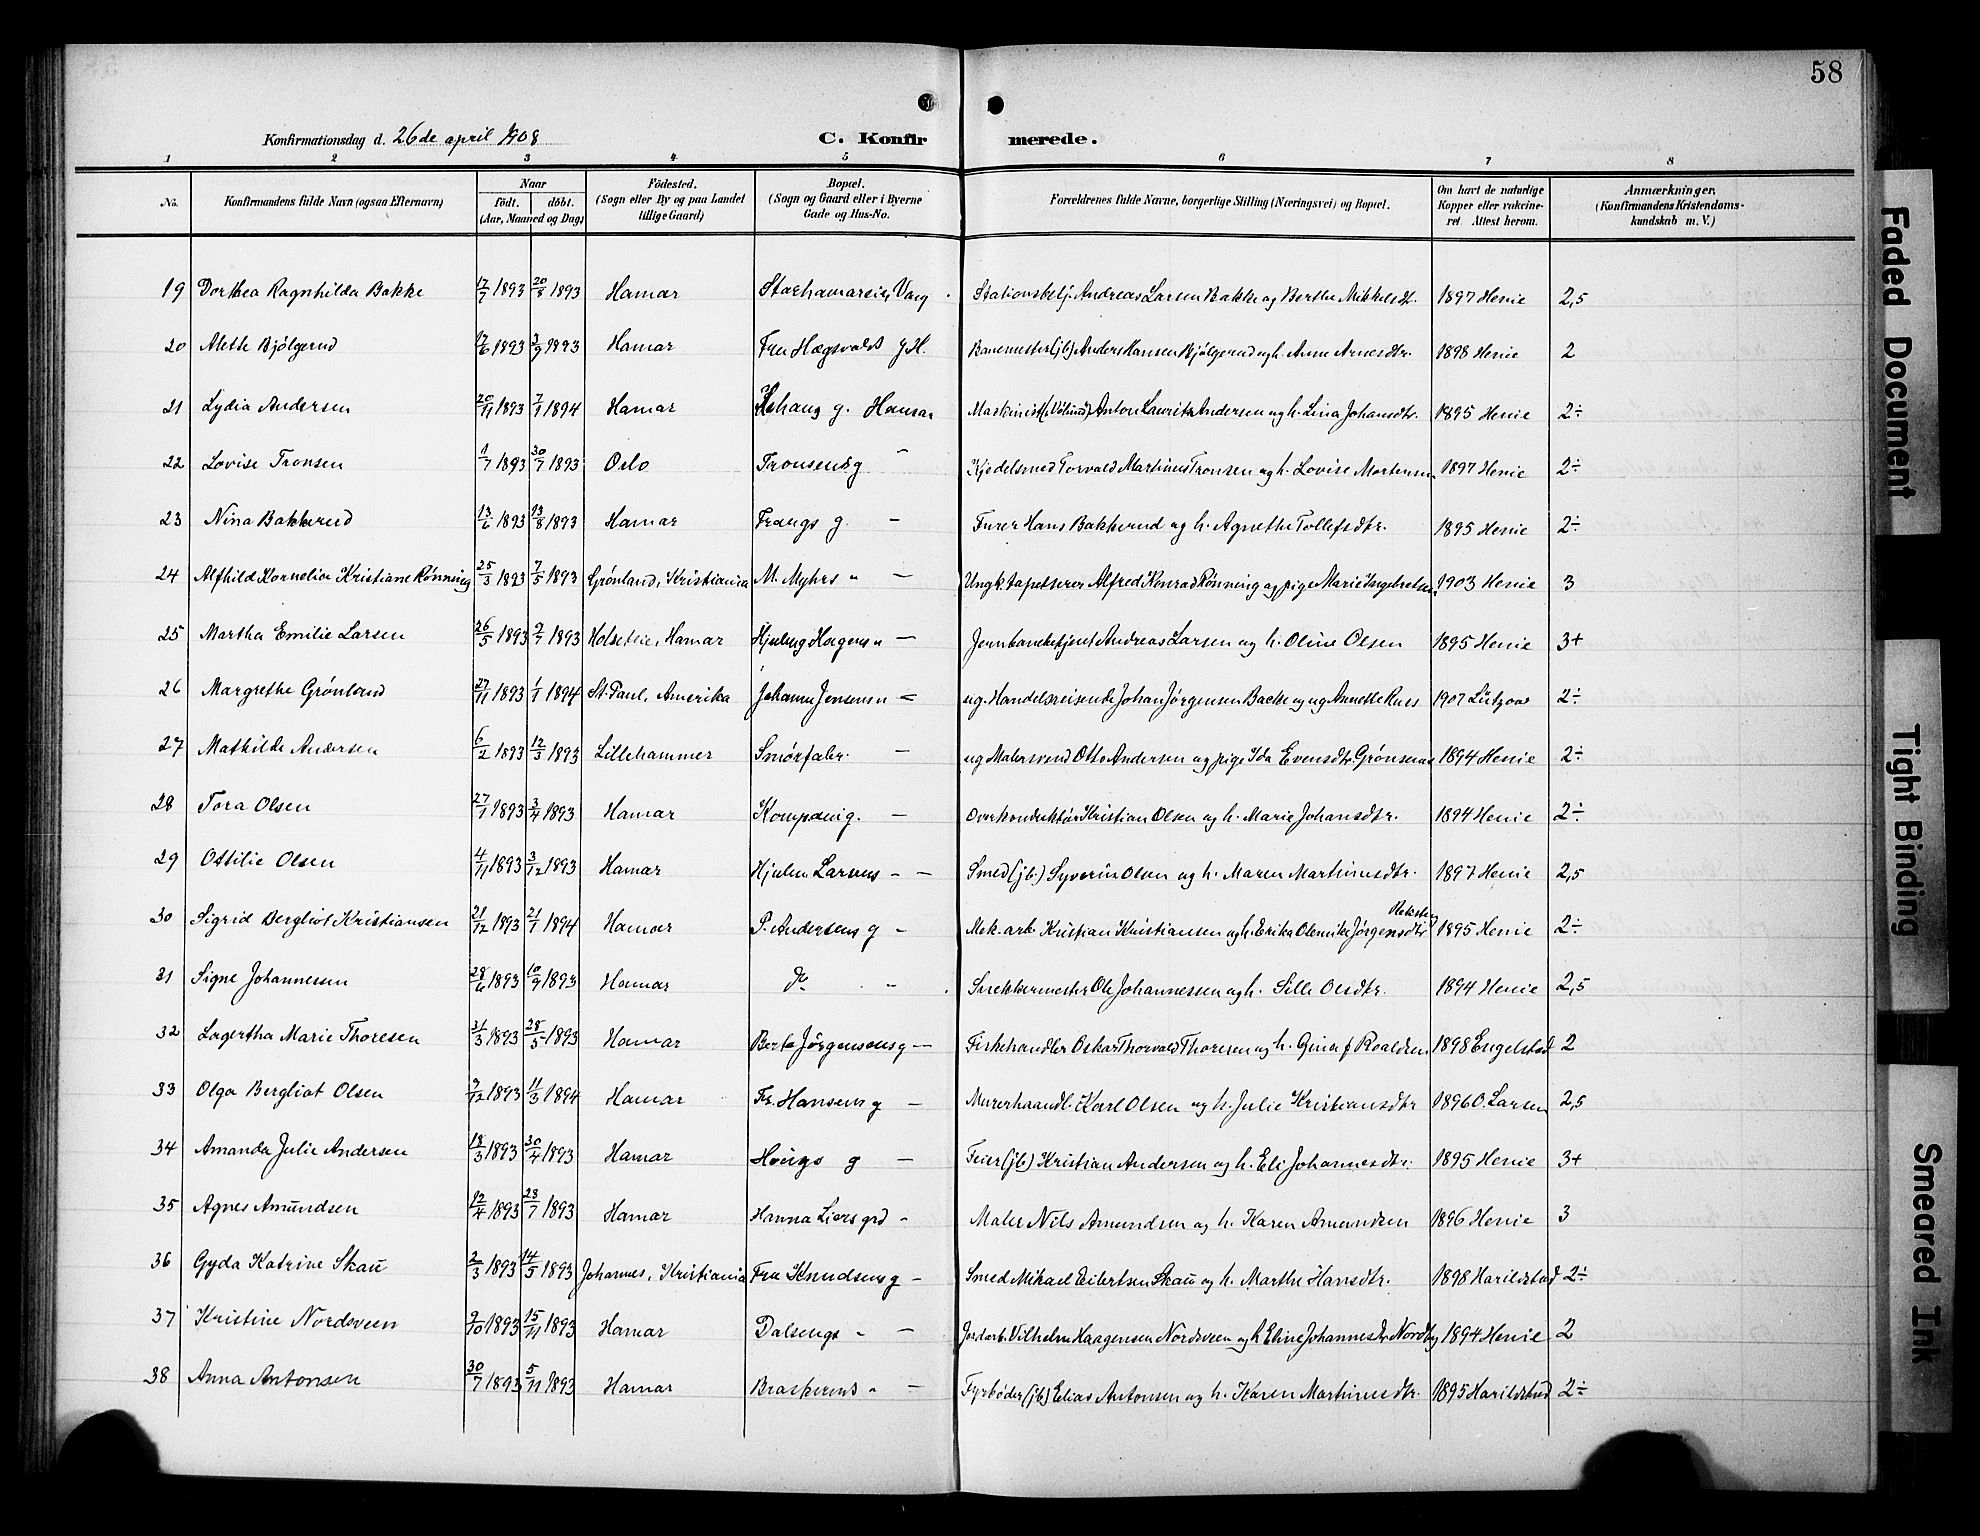 58
Konfirmationsdag d. 26de april 1908 C. Konfirmerede.
1 2 3 4 5 6 7 8
No. Konfirmandens fulde Navn (ogsaa Efternavn) Naar født. døbt. (Aar, Maaned og Dag) Fødested. (Sogn eller By og paa Landet tillige Gaard) Bopæl. (Sogn og Gaard eller i Byerne Gade og Hus-No. Forældrenes fulde Navne, borgerlige Stilling (Næringsvei) og Bopæl. Om havt de naturlige Kopper eller vakcineret. Attest herom. Anmærkninger. (Konfirmandens Kristendomskundskab m. V.)
19 Dorthea Ragnhilda Bakke 12/7 1893 20/8 1893 Hamar Storhamarsin, Vang Stationsbetj. Andreas Larsen Bakke og Berthe Mikkelsdt. 1897 Henie 2,5
20 Alethe Bjölgerud 12/6 1893 3/9 1893 Hamar Fru Hægsvolds g H. Banemester (jb) Anders Hansen Bjölgerud og h. Anne Arnesdtr. 1898 Henie 2
21 Lydia Andersen 20/11 1893 7/1 1894 Hamar g. Hamar Maskinist Anton Lauritz Andersen og h. Lina Johansdtr. 1895 Henie 2÷
22 Lovise Tronsen 1/7 1893 30/7 1893 Oslo Tronsens g " Kjedelsmed Torvald Martinus Tronsen og h. Lovise Mortensen 1897 Henie 2÷
23 Nina Bakkerud 13/6 1893 13/8 1893 Hamar Frangs g. – Furer Hans Bakkerud og h. Agnethe Tollefsdtr. 1895 Henie 2÷
24 Alfhild Kornelia Kristiane Rønning 25/3 1893 7/5 1893 Grønland, Kristiania M. Myhrs " – Ungk. tapetserer Alfred Konrad Rønning og pige Marie Ingebretsen 1903 Henie 3
25 Martha Emilie Larsen 26/5 1893 2/7 1893 Holsetlie, Hamar Hjuling Hagens " – Jernbanebetjent Andreas Larsen og h. Oline Olsen 1895 Henie 3+
26 Margrethe Grønland 27/11 1893 1/1 1894 St. Paul, Amerika Johanne Jensens " – ug. Handelsreisende Johan Jørgensen Backe og ug Annette Rues 1907 Lützow 2÷
27 Mathilde Andersen 6/2 1893 12/3 1893 Lillehammer Smørfabr. – ug Malersvend Otto Andersen og pige Ida Evensdtr. 1894 Henie 2÷
28 Tora Olsen 27/1 1893 3/4 1893 Hamar Kompanig. – Overkonduktør Kristian Olsen og h. Marie Johansdtr. 1894 Henie 2÷
29 Ottilie Olsen 4/11 1893 3/12 1893 Hamar Hjulm. Larsens – – Smed (jb.) Syverin Olsen og h. Maren Martinusdtr. 1897 Henie 2,5
30 Sigrid Bergliot Kristiansen 21/12 1893 21/1 1894 Hamar P. Andersens g – Mek. arb. Kristian Kristiansen og h. Erika Olenike Jørgensdtr 1895 Henie 2÷
31 Signe Johannessen 28/6 1893 10/9 1893 Hamar do – Snekkermester Ole Johannessen og h. Sille Olsdtr. 1894 Henie 2,5
32 Lagertha Marie Thoresen 31/3 1893 28/5 1893 Hamar Berte Jörgensens g – Fiskehandler Oskar Thorvald Thoresen og h. Gina f Roaldsen 1898 Engelstad 2
33 Olga Bergliot Olsen 9/12 1893 11/3 1894 Hamar Fr. Hansens g – Murerhaandl. Karl Olsen og h. Julie Kristiansdtr 1896 O. Larsen 2,5
34 Amanda Julie Andersen 18/3 1893 30/4 1893 Hamar Houges g – Feier (jb) Kristian Andersen og h. Eli Johannesdtr. 1895 Henie 3+
35 Agnes Amundsen 12/4 1893 23/7 1893 Hamar Hanna Liers grd – Maler Nils Amundsen og h. Karen Amundsen 1896 Henie 3
36 Gyda Katrine Skau 2/3 1893 14/5 1893 Johannes, Kristiania Fru Knudsens g – Smed Mikael Eilertsen Skau og h. Marthe Hansdtr. 1898 Harildstad 2÷
37 Kristine Nordsveen 9/10 1893 15/11 1893 Hamar Dalsengs " – Jordarb. Vilhelm Haagensen Nordsveen og h Eline Johannesdr Nordby 1894 Henie 2
38 Anna Antonsen 30/7 1893 5/11 1893 Hamar Braskeruds " – Fyrbøder (jb) Elias Antonsen og h. Karen Martinusdtr. 1895 Harildstad 2÷
Faded Document
Tight Binding
Smeared Ink